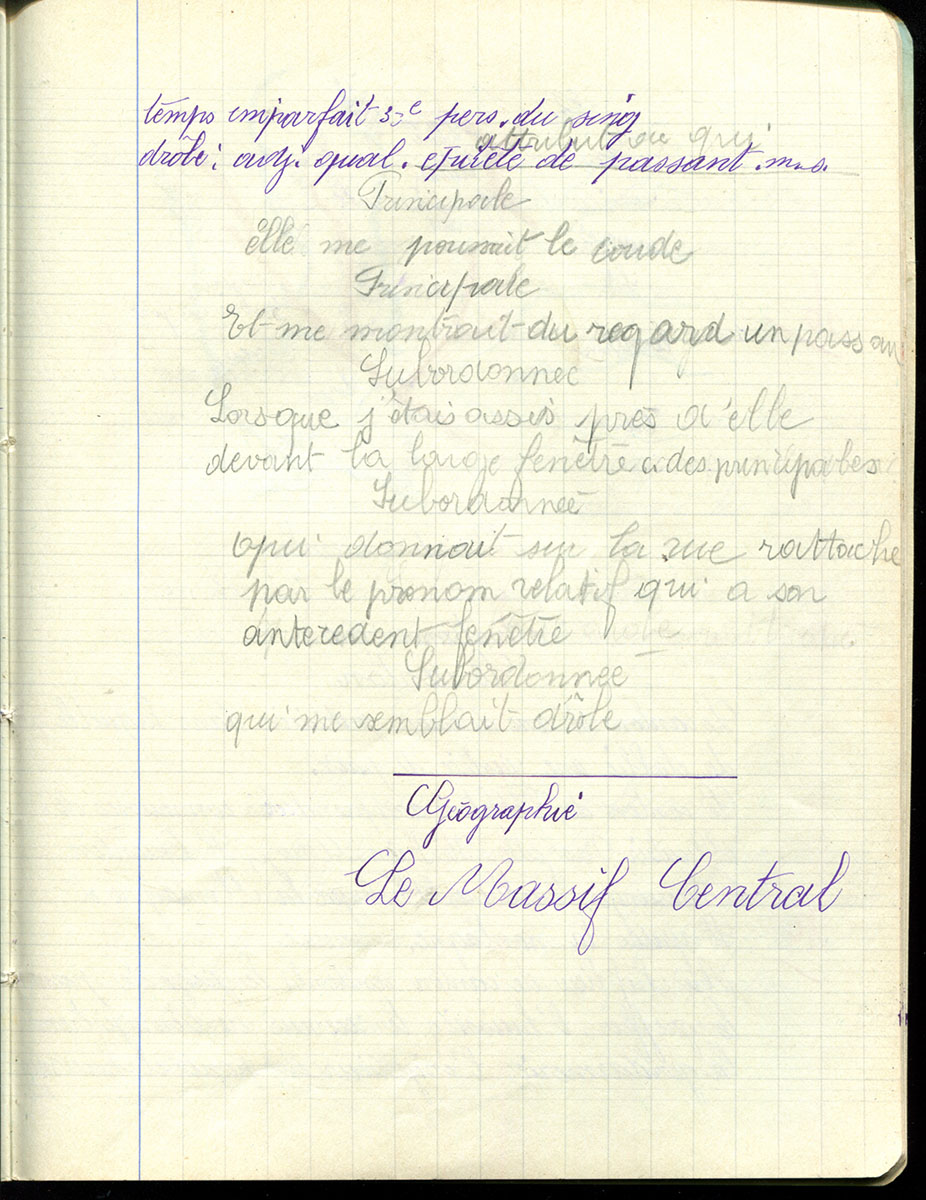 temps imparfait 3e pers. du sing
attribut du qui
drôle : adj. qual. de passant . m. s.
Principale
elle me poussait le coude
Principale
Et me montrait du regard un passan
Subordonnée
Lorsque j'étais assis près d'elle
devant la large fenêtre c des principales
Subordonnée
qui donnait sur la rue rattaché
par le pronom relatif qui a son
antecedent fenêtre
Subordonnée
qui me semblait drôle
Géographie
Le Massif Central